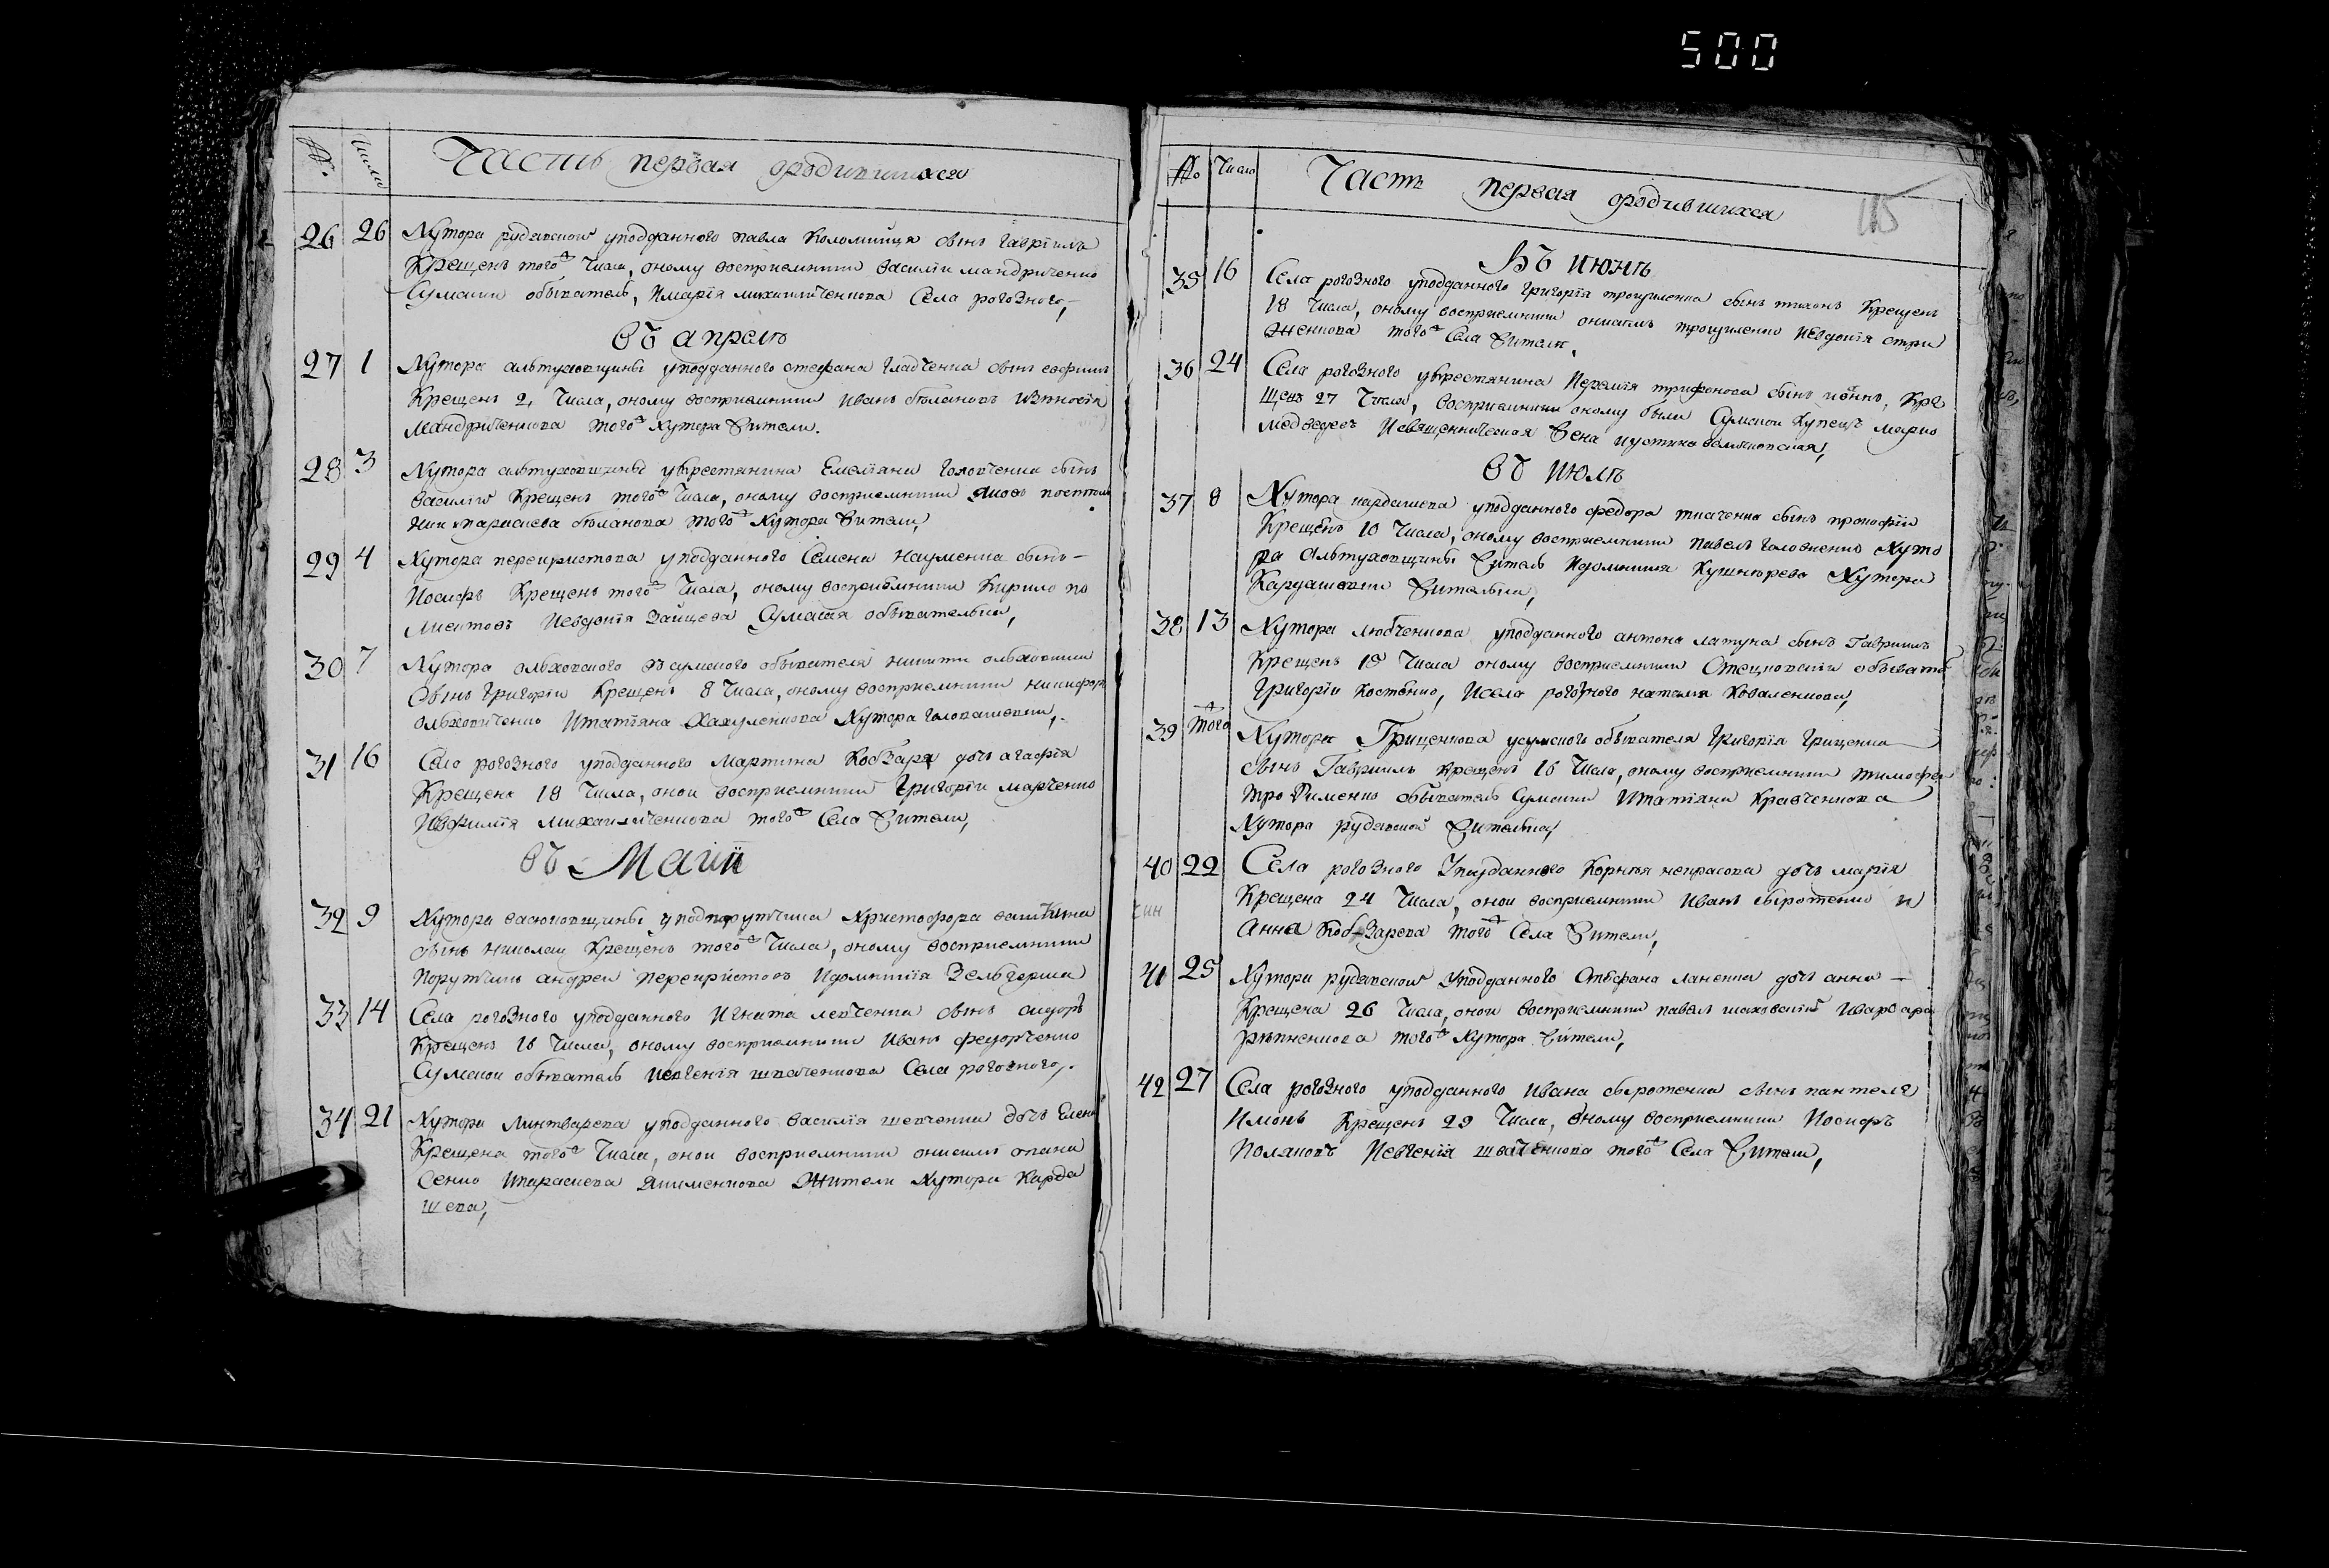 500
№ Число Часть первая фродившихся
26 26 Хутора рудавской уподданного павла коломийця сынъ гавріилъ
Крещенъ того ж Числа, оному восприемники василій мандриченко
Сумскии обыватель, Имарія михаиличенкова Села рогозного,
въ апрелѣ
27 1 Хутора алтуховщины уподданного стефана гладченка сынъ евфимъ
Крещенъ 2, Числа, оному восприемники иванъ бѣлановъ
мандриченкова того ж Хутора Жители.
28 3 Хутора алтуховщины укрестянина Емеліяна головченка сынъ
василій Крещенъ того ж Числа, оному восприемники яковъ
ипараскева бѣланова того ж Хутора Жители,
29 4 Хутора перекристова уподданного Семена науменка сынъ –
Иосифъ Крещенъ того ж Числа, оному восприемники Кирило по
Иевдокія Зайцева Сумская обывателька,
30 7 Хутора ольховского сумского обывателя никити ольховика
Сынъ григорій Крещенъ 8 Числа, оному восприемники никифоръ
ольховиченко Итатіяна Хутора головашовки,
31 16 Села рогозного уподданного мартина Кобзаря дочь агафія
Крещена 18 Числа, оной восприемники григорій марченко
Иевфимія михаиличенкова того ж Села Жители,
въ Маіи
32 9 Хутора васюковщины уподпорутчика Христофора
сынъ николай Крещенъ того ж Числа, оному восприемники
порутчикъ андрей перекрістовъ Идомникія
33 14 Села рогозного уподданного Игната левченка сынъ сидоръ
Крещенъ 16 Числа, оному восприемники иванъ федорченко
Сумской обыватель Иевгенія шваченкова Села рогозного,
34 21 Хутора Линтварева уподданного василія шевченка дочь Елена
Крещена того ж Числа, оной восприемники онисимъ опана
сенко Ипараскева якименкова Жители Хутора Карда
шева,
№ Число Часть первая фродившихся 115
Въ июнѣ
35 16 Села рогозного уподданного григорія троциленка сынъ тихонъ Крещенъ
18 Числа, оному восприемники троциленко Иевдокія стри
женкова того ж Села Жители,
36 24 Села рогозного укрестянина Иеремія трифонова сынъ Кре
щенъ 27 Числа, восприемники оному были Сумской купецъ марко
медведевъ Исвященническая Жена иустина
въ июлѣ
37 8 Хутора кардашева уподданного федора ткаченка сынъ прокофій
Крещенъ 10 Числа, оному восприемники павелъ головченко Хуто
ра Алтуховщины Житель Идомникія Кушнѣрева Хутора
Кардашовки Жителька,
38 13 Хутора любченкова уподданного антона латуна сынъ Гавриилъ
Крещенъ 15 Числа оному восприемники Стецковскій обыватель
григорій костенко, Исела рогозного наталія Коваленкова,
39 того ж Хутора Гриценкова усумского обывателя григорія гриценка
сынъ Гавриилъ Крещенъ 16 Числа, оному восприемники тимофей
обыватель Сумский Итатіяна Кравченкова
Хутора рудавской Жителька,
40 22 Села рогозного Уподданного Корнѣя некрасова дочь марія
Крещена 24 Числа, оной восприемники иванъ сыротенко и
Анна Коб-Зарева того ж Села Жители,
син
41 25 Хутора рудавской Уподданного Стефана ланенка дочь анна –
Крещена 26 Числа, оной восприемники павелъ шаховскій Иварвара
рѣпченкова того ж Хутора Жители,
42 27 Села рогозного уподданного ивана сыротенка сынъ пантеле
Имонъ Крещенъ 29 Числа, оному восприемники Иосифъ
поляковъ Иевгенія шваченкова того ж Села Жители,